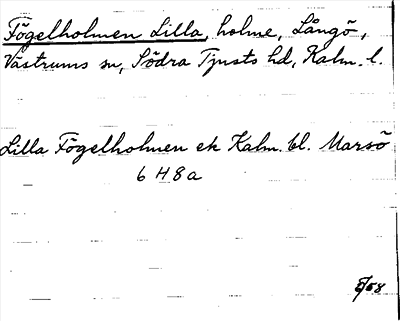 Fögelholmen Lilla, holme, Långö,
Västrums sn, Södra Tjusts hd, Kalm. l.
Lilla Fögelholmen ek Kalm. bl. Marsö
6 H 8 a